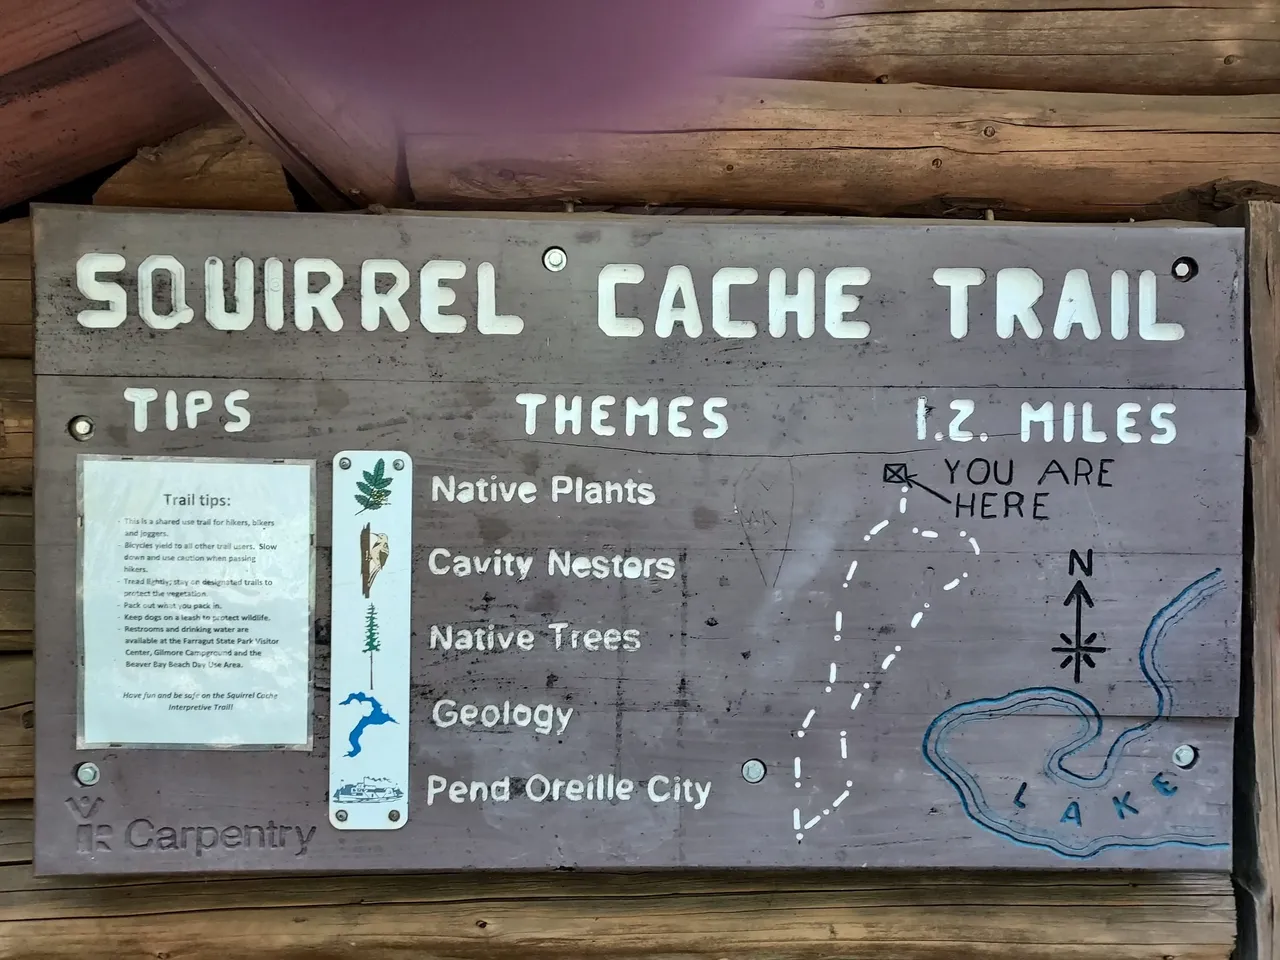 SQUIRREL CACHE TRAIL
TIPS
Trail tips:
- This is a shared use trail for hikers, bikers
and joggers.
- Bicycles yield to all other trail users. Slow
down and use caution when passing
hikers.
- Tread lightly; stay on designated trails to
protect the vegetation.
- Pack out what you pack in.
- Keep dogs on a leash to protect wildlife.
- Restrooms and drinking water are
available at the Farragut State Park Visitor
Center, Gilmore Campground and the
Beaver Bay Beach Day Use Area.
Have fun and be safe on the Squirrel Cache
Interpretive Trail!
Carpentry
THEMES
Native Plants
Cavity Nestors
Native Trees
Geology
Pend Oreille City
1.2. MILES
YOU ARE
HERE
N
LAKE